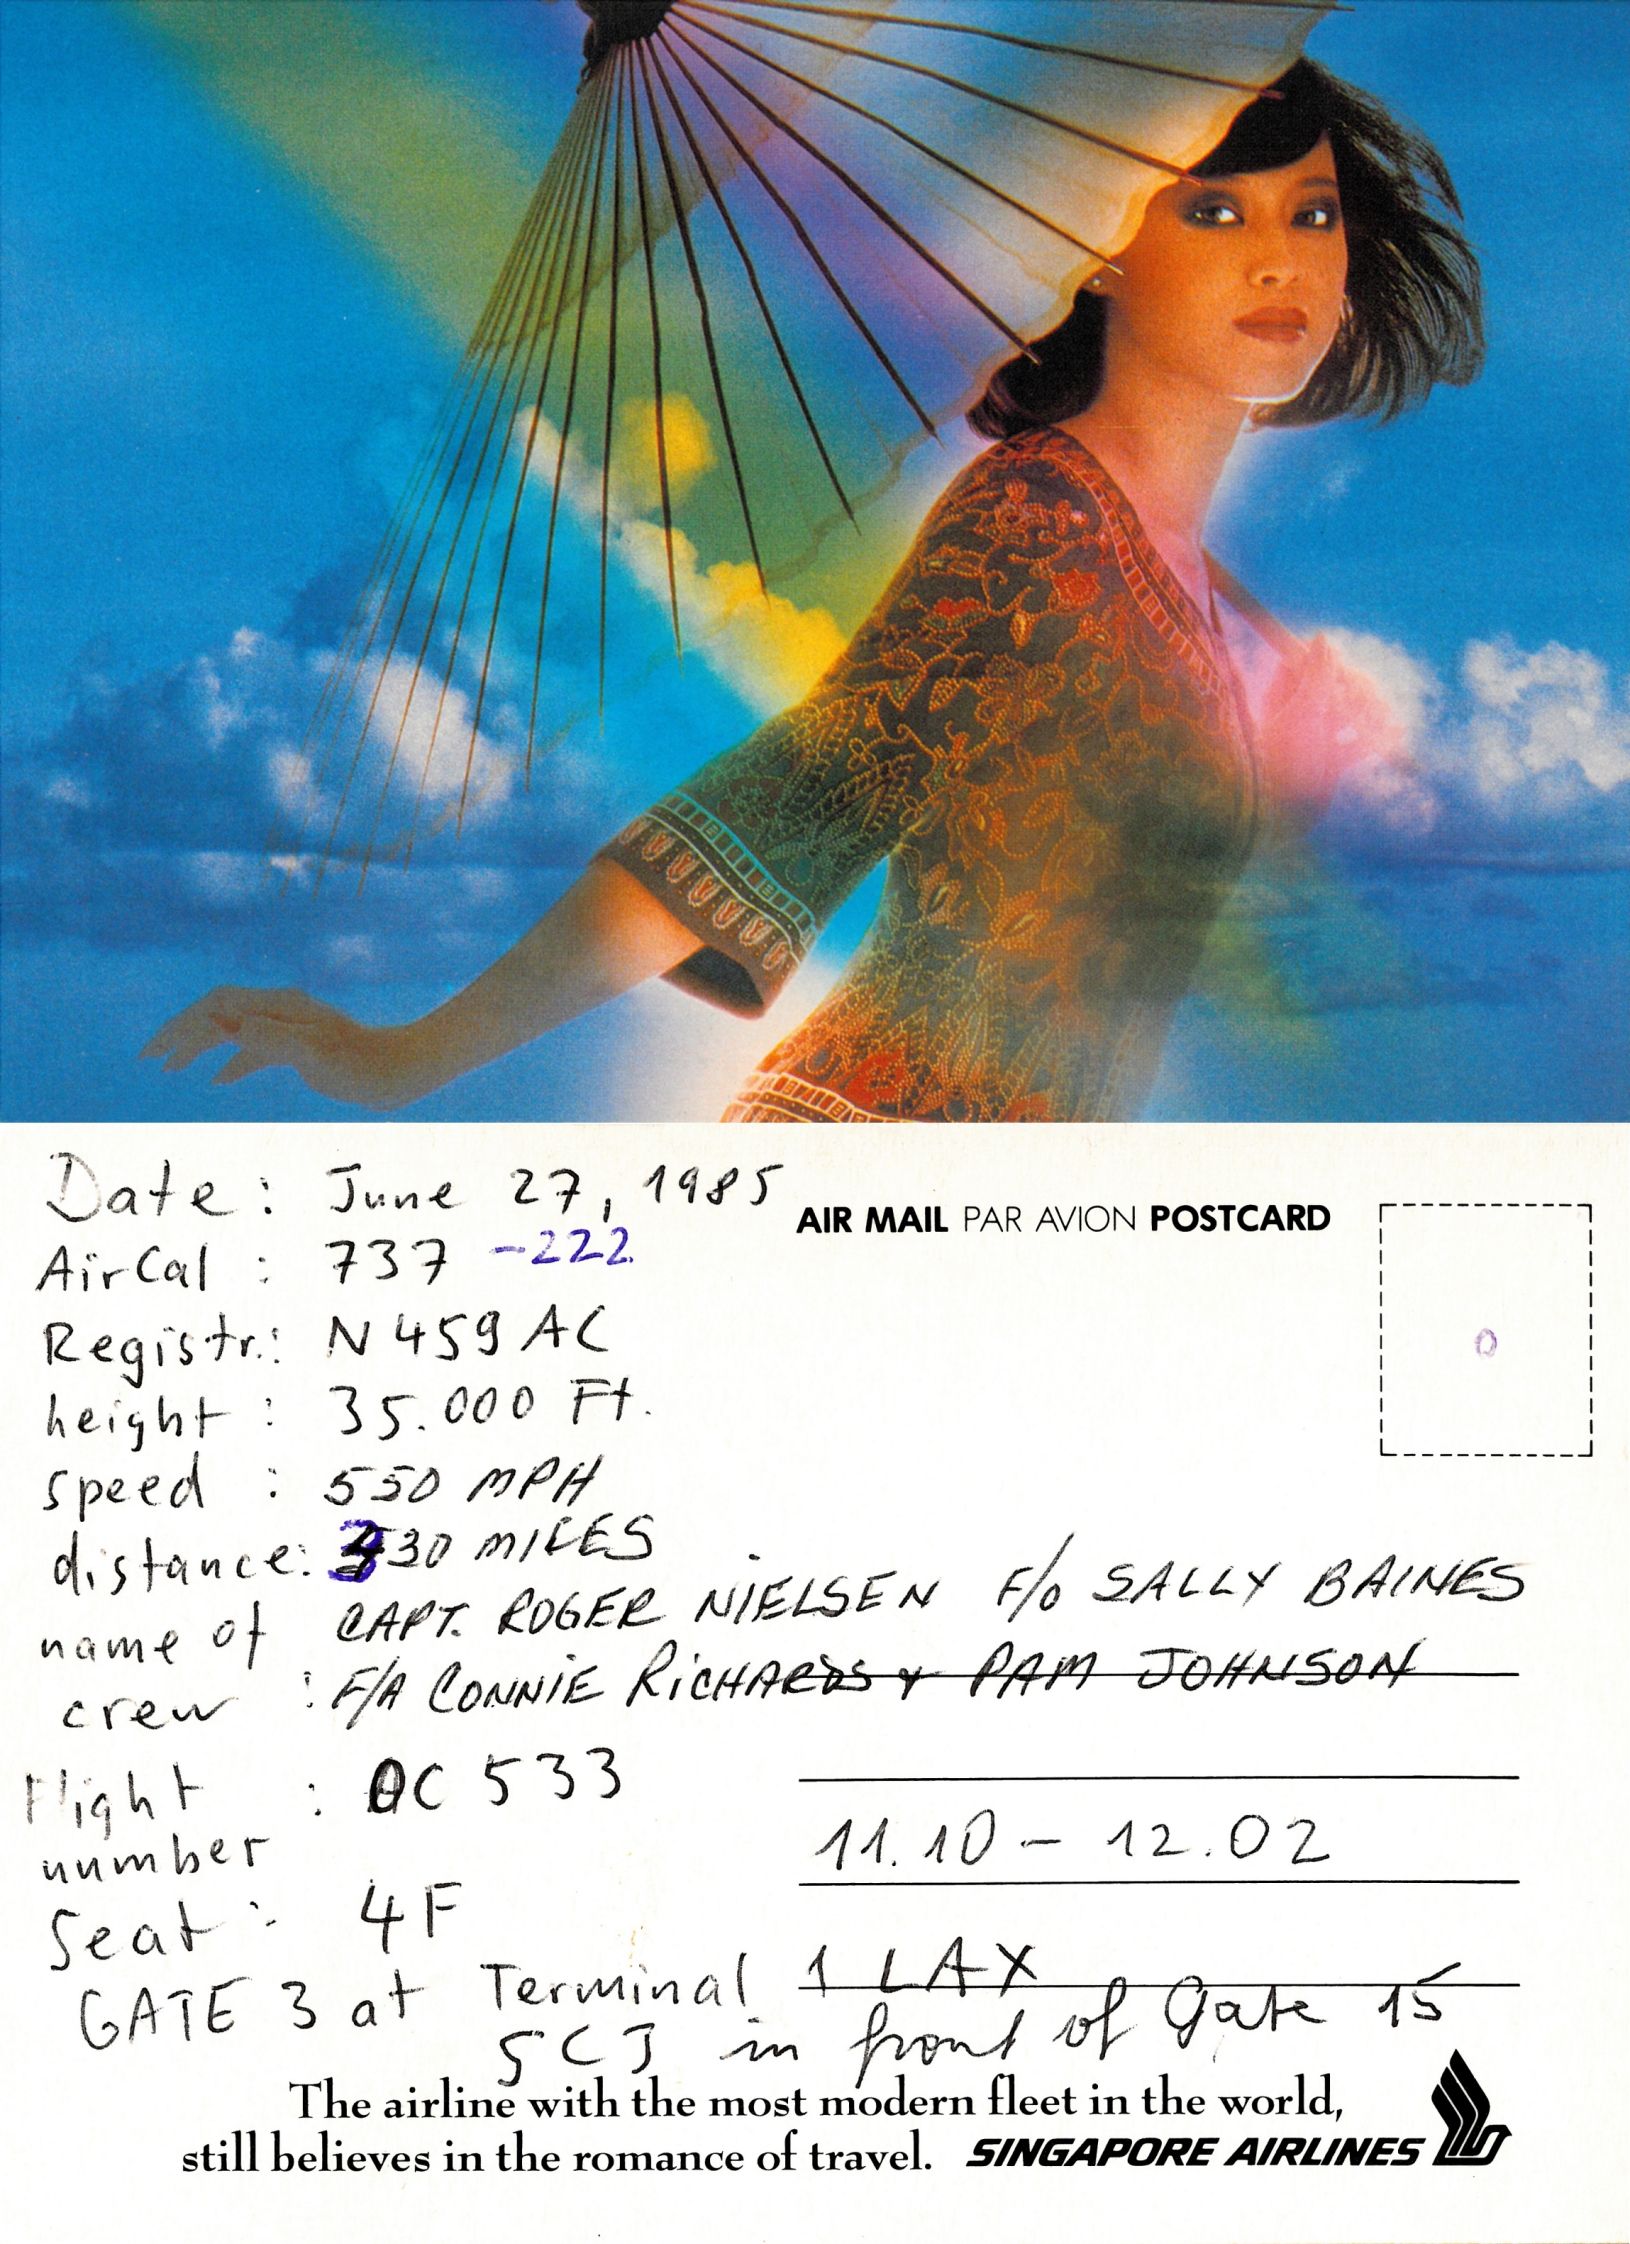 Date: June 27, 1985
AIR MAIL PAR AVION POSTCARD
AirCal: 737 -222
Registr.: N459AC
height: 35.000 Ft.
speed: 550 MPH
distance: 330 MILES
name of crew: CAPT. ROGER NIELSEN F/O SALLY BAINES
F/A CONNIE RICHARDS & PAM JOHNSON
Flight number: OC 533
11.10 - 12.02
Seat: 4F
GATE 3 at Terminal 1 LAX
SCJ in front of Gate 15
The airline with the most modern fleet in the world,
still believes in the romance of travel. SINGAPORE AIRLINES